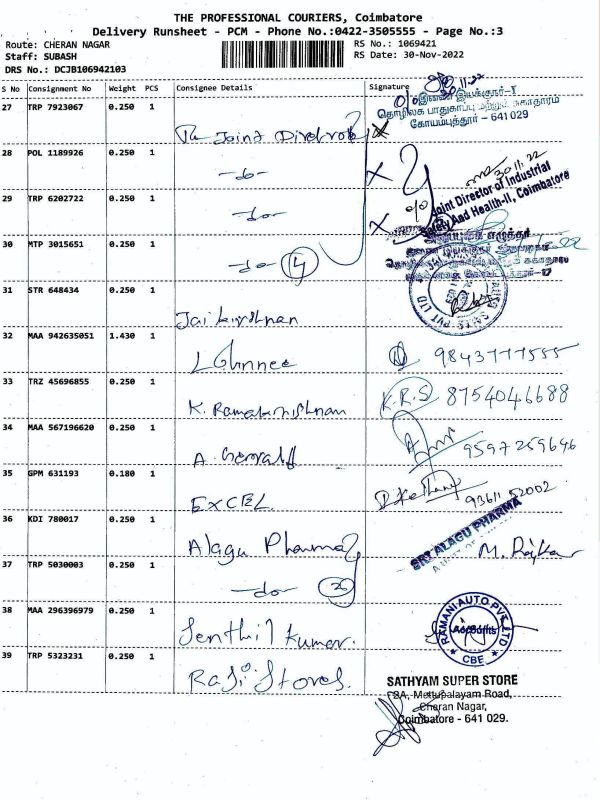 THE PROFESSIONAL COURIERS, Coimbatore
Delivery Runsheet - PCM - Phone No.:0422-3505555 - Page No.:3
Route: CHERAN NAGAR
RS No.: 1069421
Staff: SUBASH
RS Date: 30-Nov-2022
DRS No.: DCJB106942103
S No Consignment No Weight PCS Consignee Details Signature
30.11.22
27 TRP 7923067 0.250 1
இணை இயக்குநர்-I
தொழிலக பாதுகாப்பு மற்றும் சுகாதாரம்
கோயம்புத்தூர் - 641 029
The Joint Director
28 POL 1189926 0.250 1
-do-
30.11.22
Joint Director of Industrial
Safety And Health-II, Coimbatore
29 TRP 6202722 0.250 1
-do-
30 MTP 3015651 0.250 1
-do- 4
31 STR 648434 0.250 1
Jai krishnan
32 MAA 942635051 1.430 1
9843777555
33 TRZ 45696855 0.250 1
K. Ramakrishnan K.R.S 8754046688
34 MAA 567196620 0.250 1
9597259646
35 GPM 631193 0.180 1
EXCEL
93611 52002
36 KDI 780017 0.250 1
Alagu Pharma
SRI ALAGU PHARMA
M. Rajkar
37 TRP 5030003 0.250 1
-do-
38 MAA 296396979 0.250 1
Senthil kumar.
RAMANI AUTO PVT LTD
Accounts
CBE
39 TRP 5323231 0.250 1
Raji Stores.
SATHYAM SUPER STORE
Mettupalayam Road,
Cheran Nagar,
Coimbatore - 641 029.